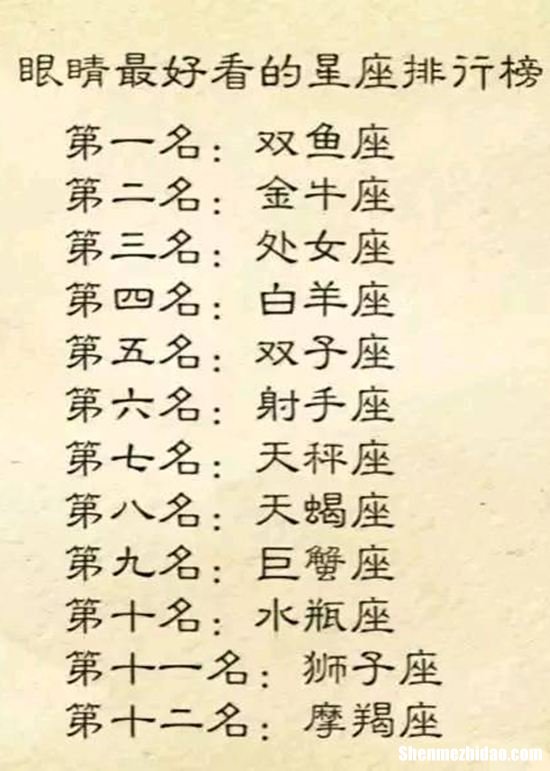 眼睛最好看的星座排行榜
第一名：双鱼座
第二名：金牛座
第三名：处女座
第四名：白羊座
第五名：双子座
第六名：射手座
第七名：天秤座
第八名：天蝎座
第九名：巨蟹座
第十名：水瓶座
第十一名：狮子座
第十二名：摩羯座
Shenmezhidao.com